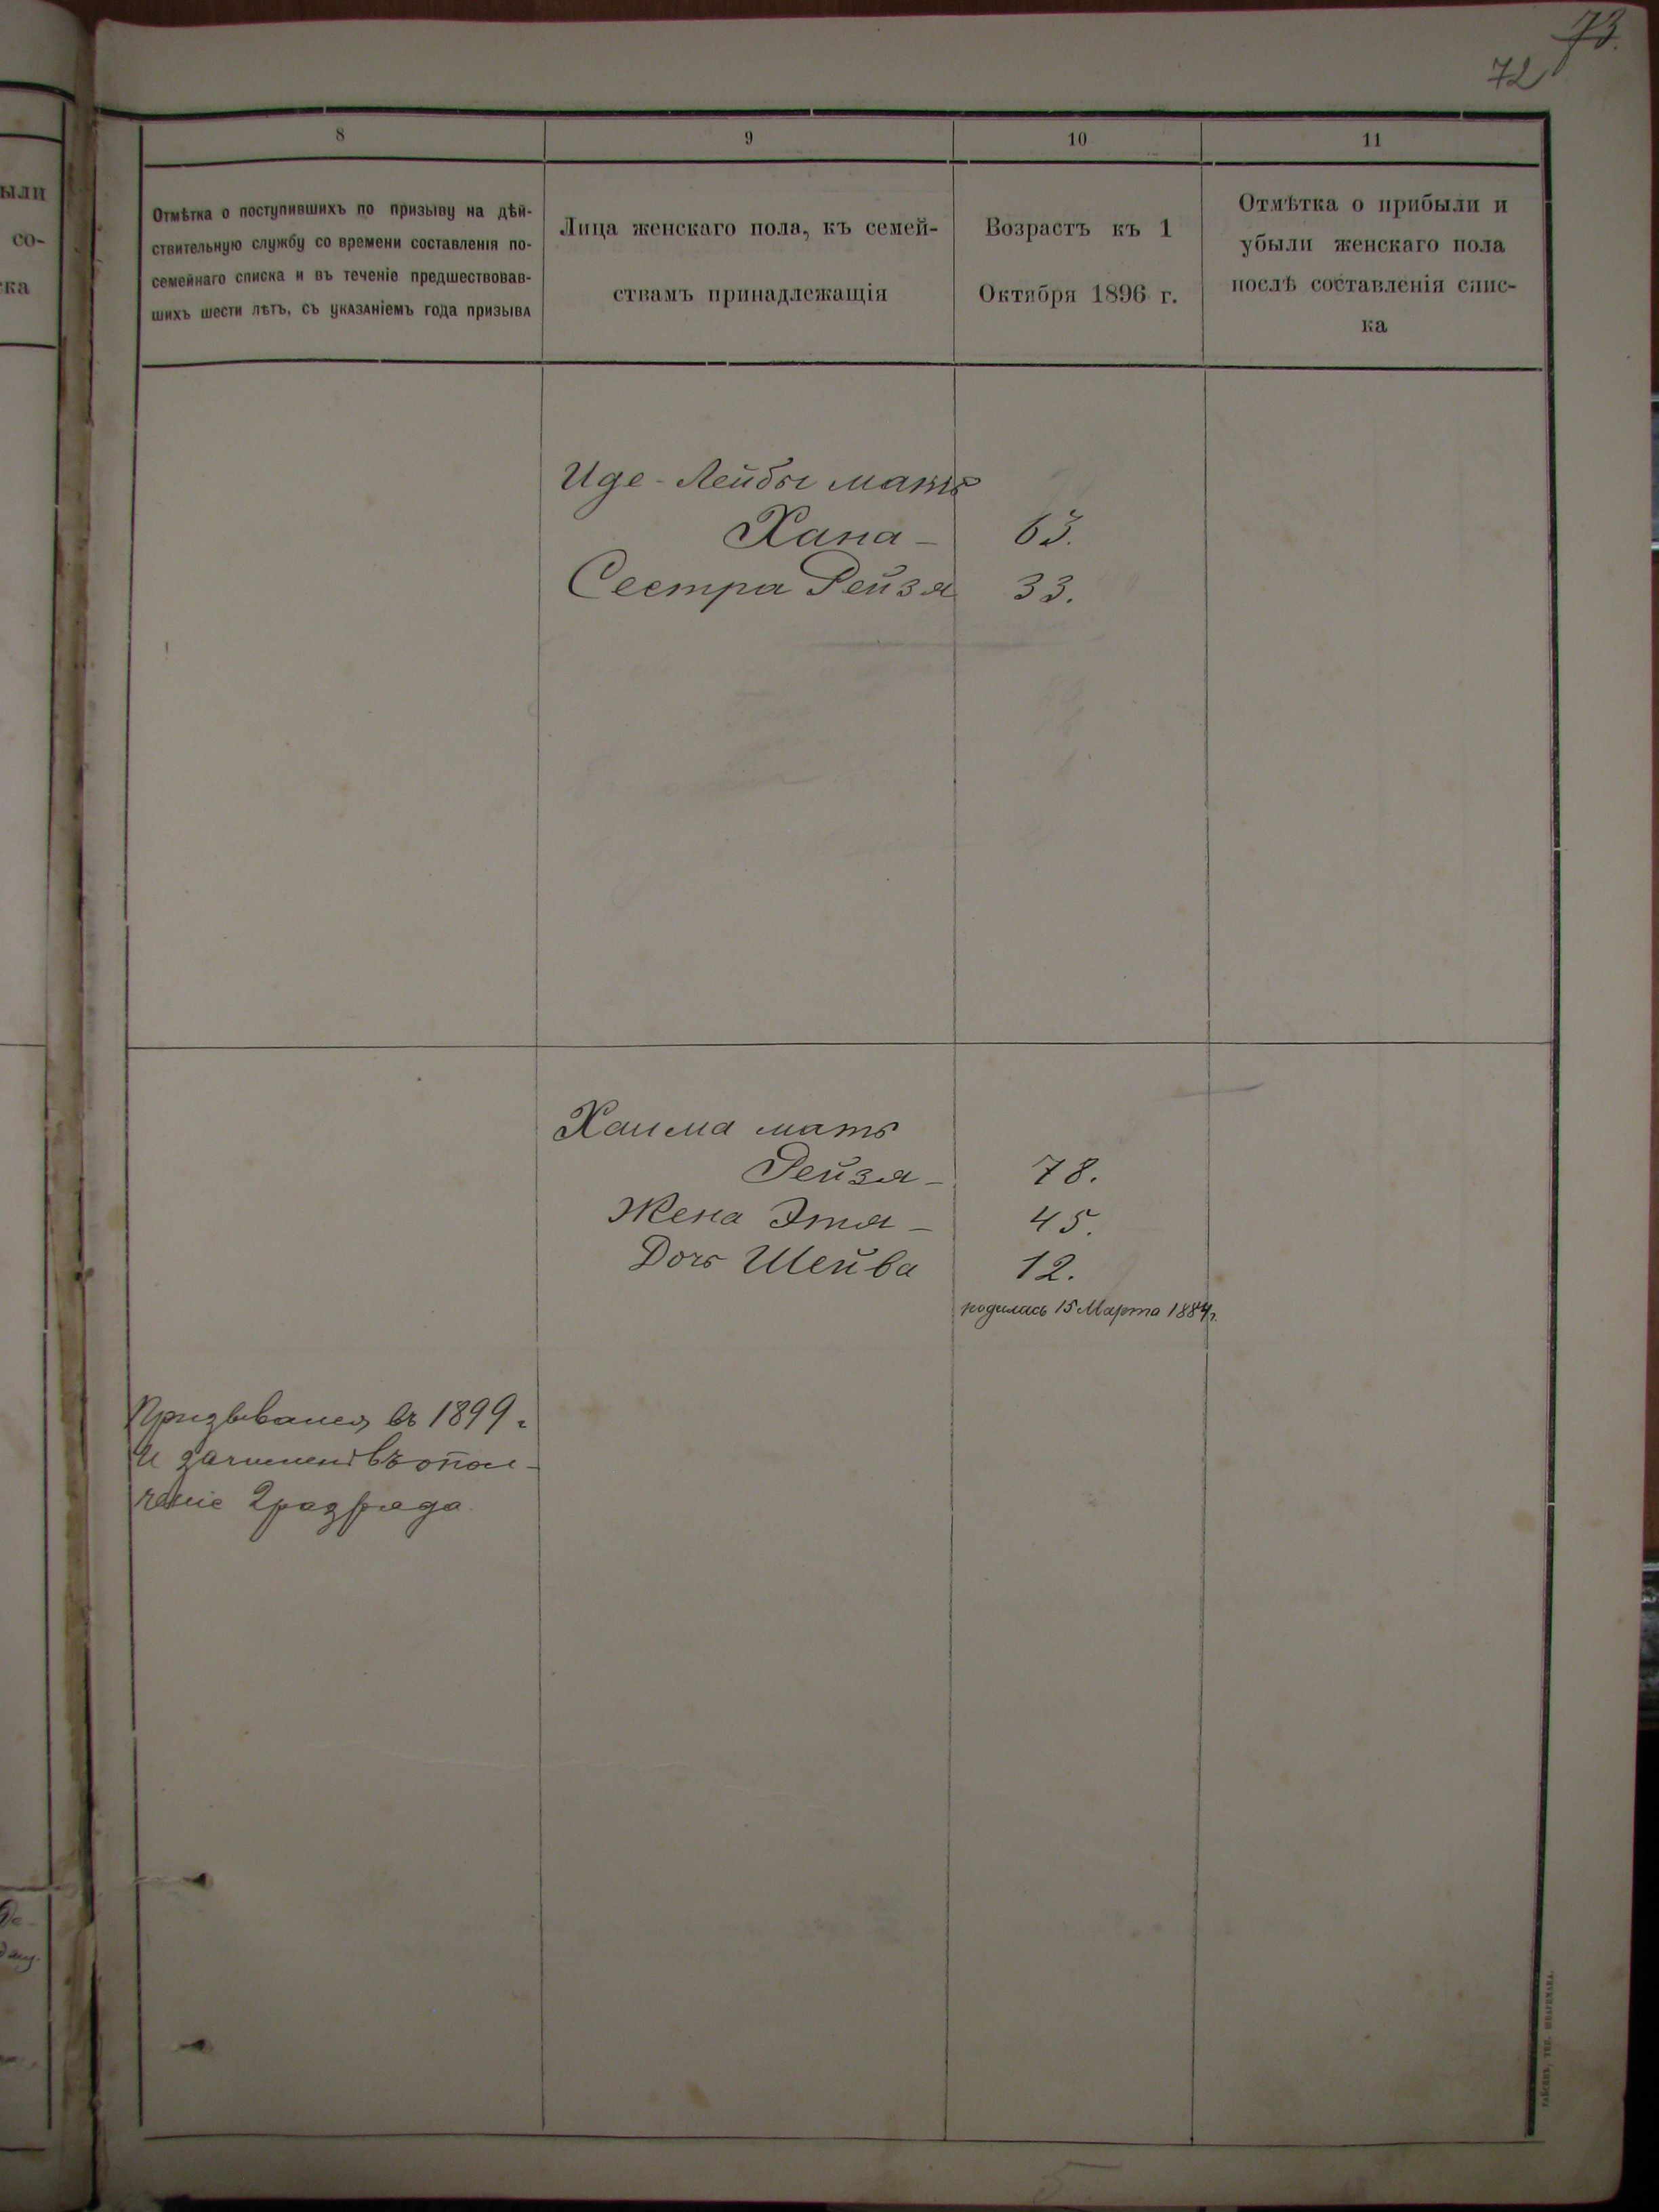 73.
72
8
9
10
11
Отмѣтка о поступившихъ по призыву на дѣй-
ствительную службу со времени составленія по-
семейнаго списка и въ теченіе предшествовав-
шихъ шести лѣтъ, съ указаніемъ года призыва
Лица женскаго пола, къ семей-
ствамъ принадлежащія
Возрастъ къ 1
Октября 1896 г.
Отмѣтка о прибыли и
убыли женскаго пола
послѣ составленія спис-
ка
ыли
со-
ска
Иде-Лейбы мать
Хана – 63.
Сестра Рейзя 33.
Хаима мать
Рейзя – 78.
Жена Этя – 45.
Дочь Шейва 12.
родилась 15 Марта 1884 г.
Призывался въ 1899 г.
и зачисленъ въ опол-
ченіе 2 разряда.